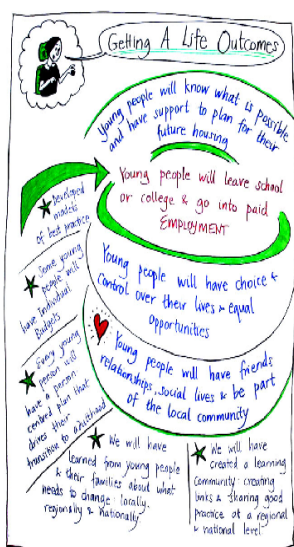 Getting A Life Outcomes
Young people will know what is possible
and have support to plan for their
future housing
Young people will leave school
or college & go into paid
EMPLOYMENT
Young people will have choice &
control over their lives & equal
opportunities
Young people will have friends
relationships, social lives & be part
of the local community
Developed
models
of best practice
Some young
people will
have Individual
Budgets
Every young
person will
have a person
centred plan that
drives their
transition to adulthood
We will have
learned from young people
& their families about what
needs to change: locally,
regionally & nationally
We will have
created a learning
community: creating
links & sharing good
practice at a regional
& national level